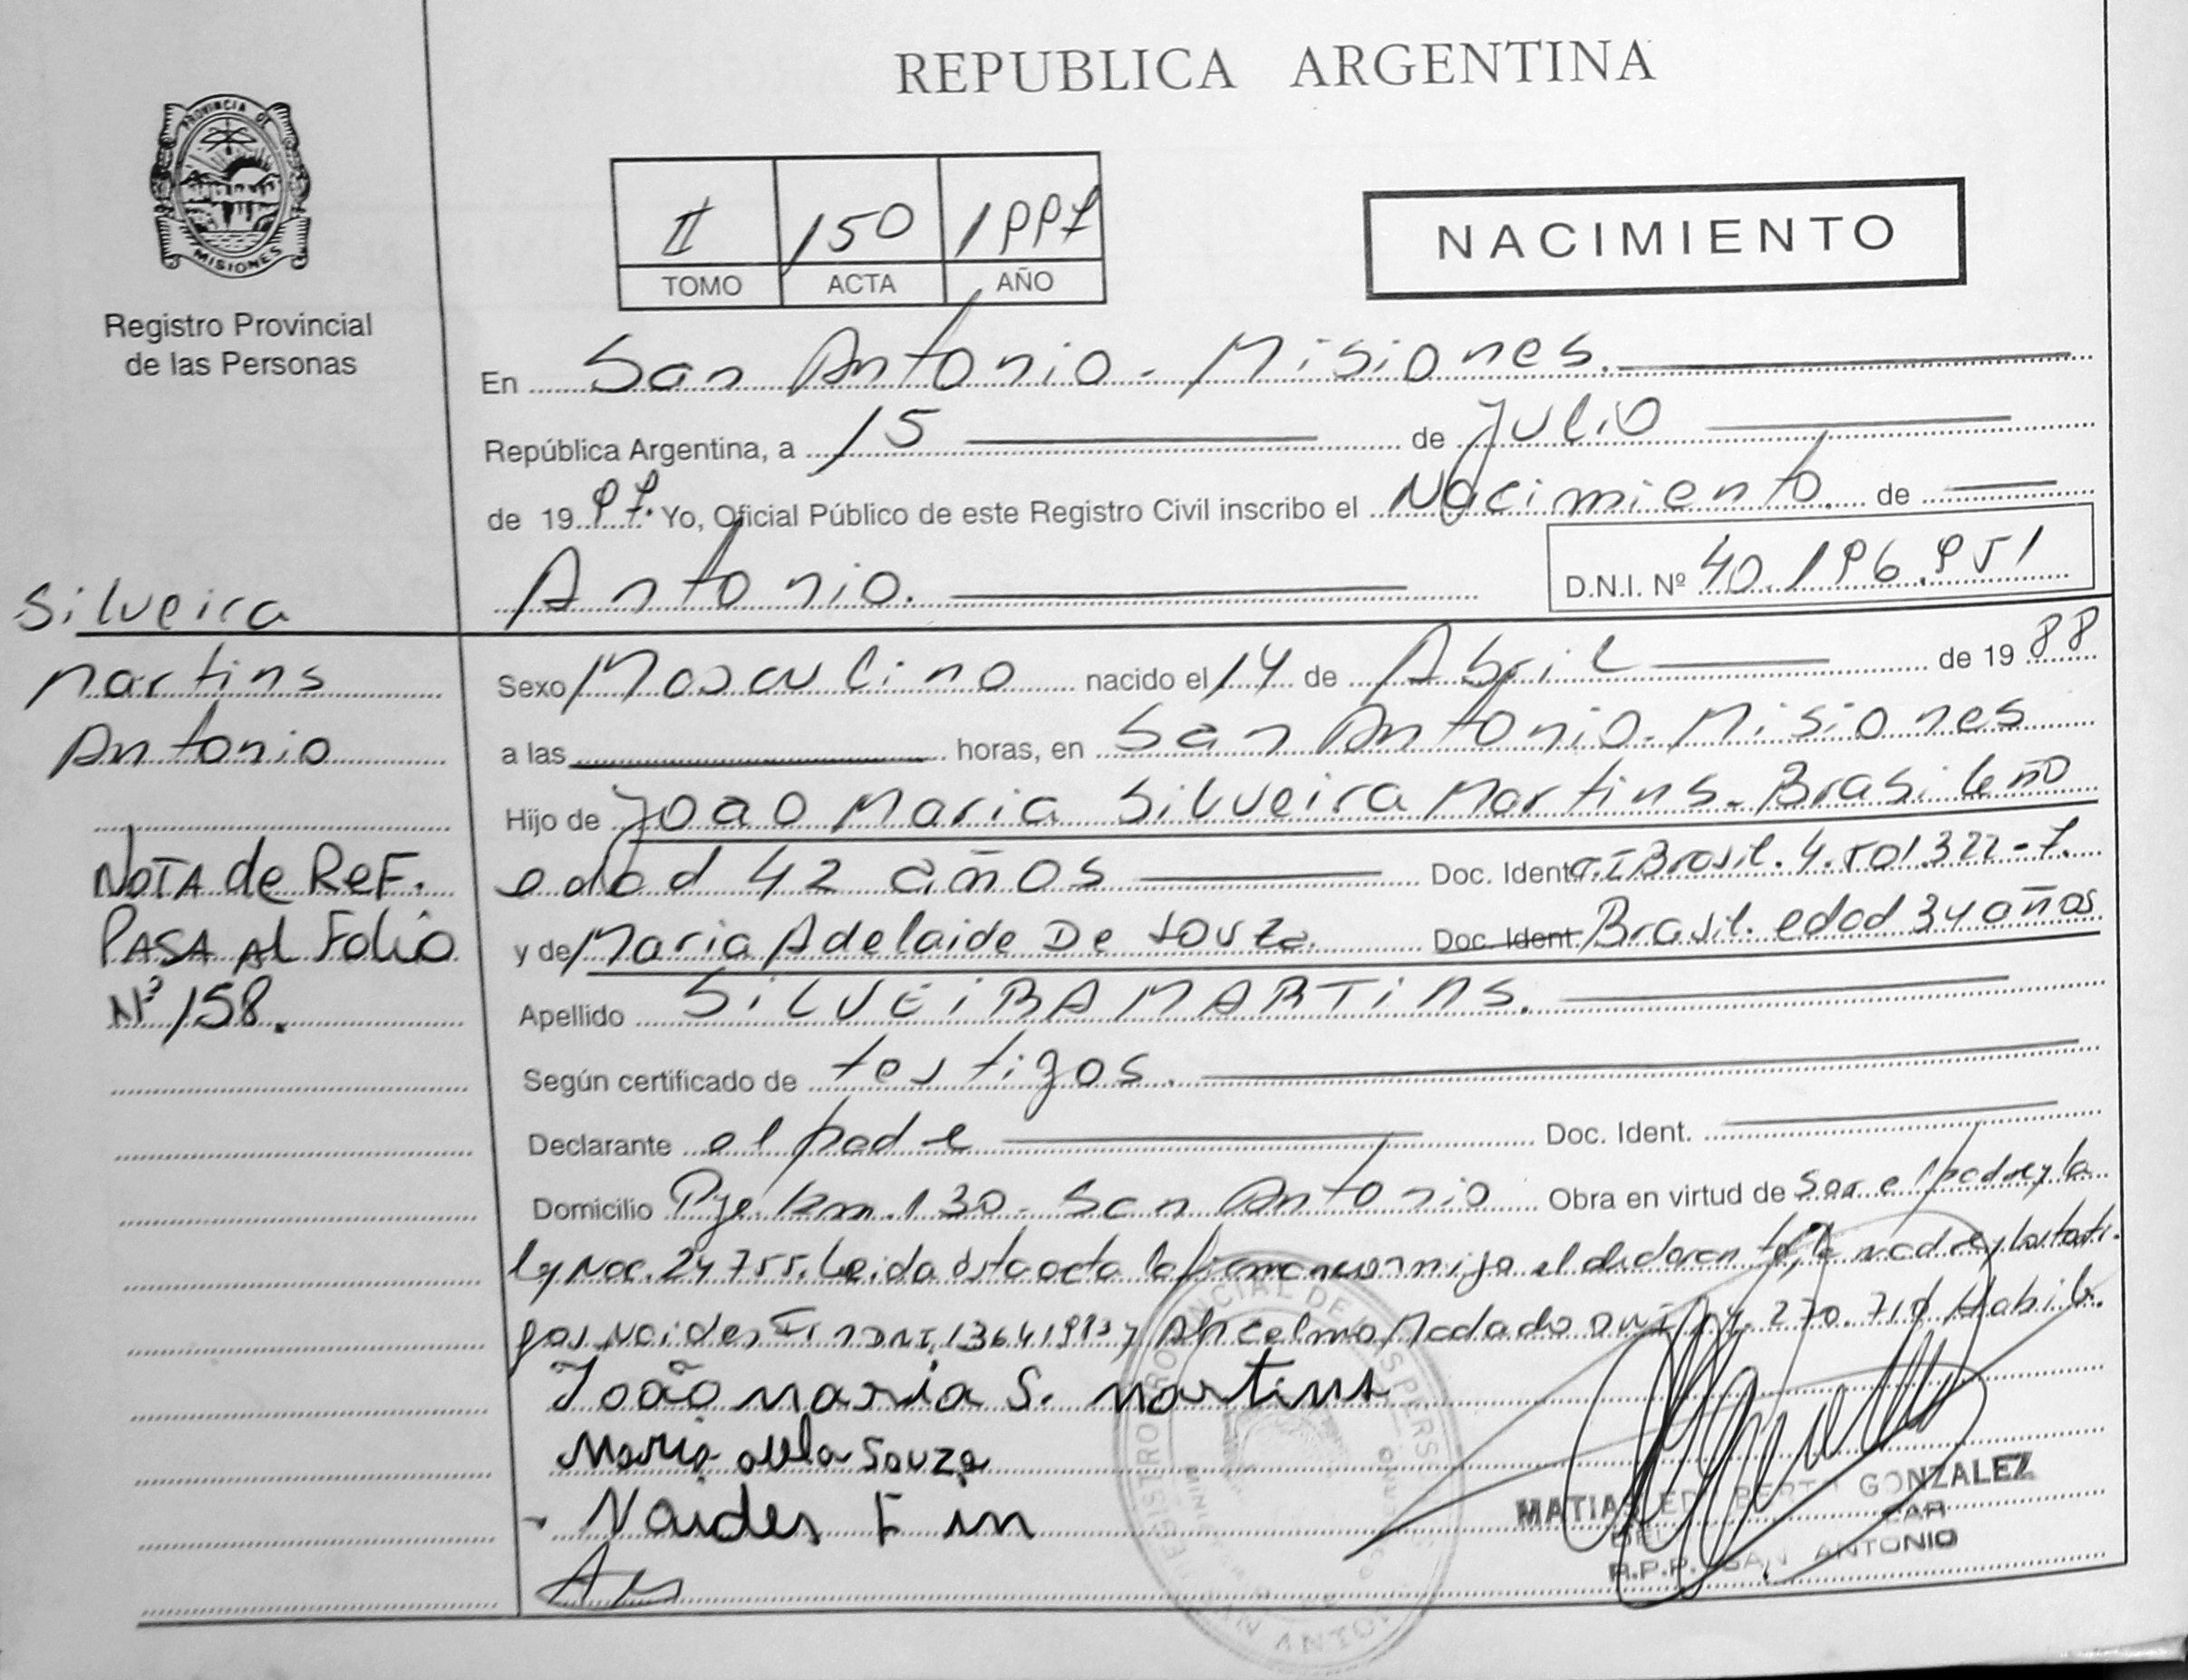 REPUBLICA ARGENTINA
PROVINCIA DE
MISIONES
Registro Provincial
de las Personas
II 150 1997
TOMO ACTA AÑO
NACIMIENTO
En San Antonio - Misiones.
República Argentina, a 15 de Julio
de 1997. Yo, Oficial Público de este Registro Civil inscribo el Nacimiento de
Antonio. D.N.I. Nº 40.196.951
Silveira
Martins
Antonio
NOTA de ReF.
PASA Al Folio
Nº 158.
Sexo Masculino nacido el 14 de Abril de 1988
a las horas, en San Antonio - Misiones
Hijo de Joao Maria Silveira Martins - Brasileño
edad 42 años Doc. Ident. C.I Brasil. 4.501.322-7.
y de Maria Adelaide De Souza. Doc. Ident. Brasil. edad 34 años
Apellido SILVEIRA MARTINS.
Según certificado de testigos.
Declarante el padre Doc. Ident.
Domicilio Pje. km. 130 - San Antonio Obra en virtud de Sar el padre y la
ley Nac. 24755. Leida esta acta la firman conmigo el declarante, la madre y los testi-
gos Naides Fin DNI. y Ancelmo Machado DNI
João maria S. martins
Maria Souza
Naides Fin
REGISTRO PROVINCIAL DE LAS PERSONAS
MATIAS EDILBERTO GONZALEZ
R.P.P. SAN ANTONIO